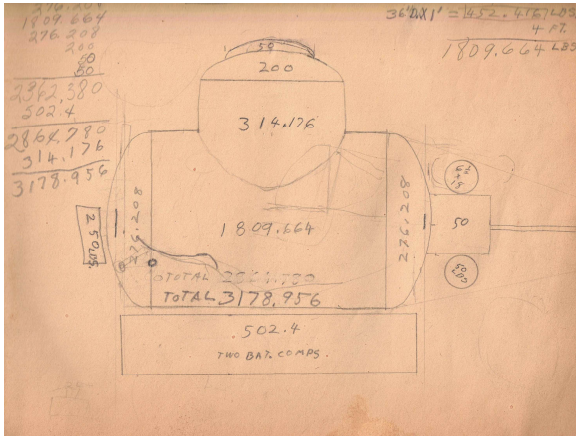 276.208
1809.664
276.208
200
50
50
2362,380
502.4
2864,780
314.176
3178.956
36"DX1' = 452.416 LBS
4 FT.
1809.664 LBS
50
200
314.176
276.208
1809.664
276.208
50
250 LBS.
TOTAL 2864.780
TOTAL 3178.956
.502.4
TWO BAT. COMPS.